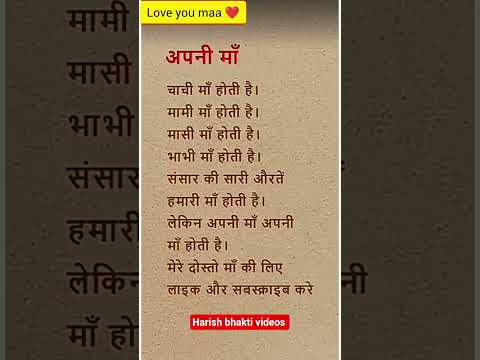 Love you maa ❤️
अपनी माँ
चाची माँ होती है।
मामी माँ होती है।
मासी माँ होती है।
भाभी माँ होती है।
संसार की सारी औरतें
हमारी माँ होती है।
लेकिन अपनी माँ अपनी
माँ होती है।
मेरे दोस्तो माँ की लिए
लाइक और सबस्क्राइब करे
Harish bhakti videos